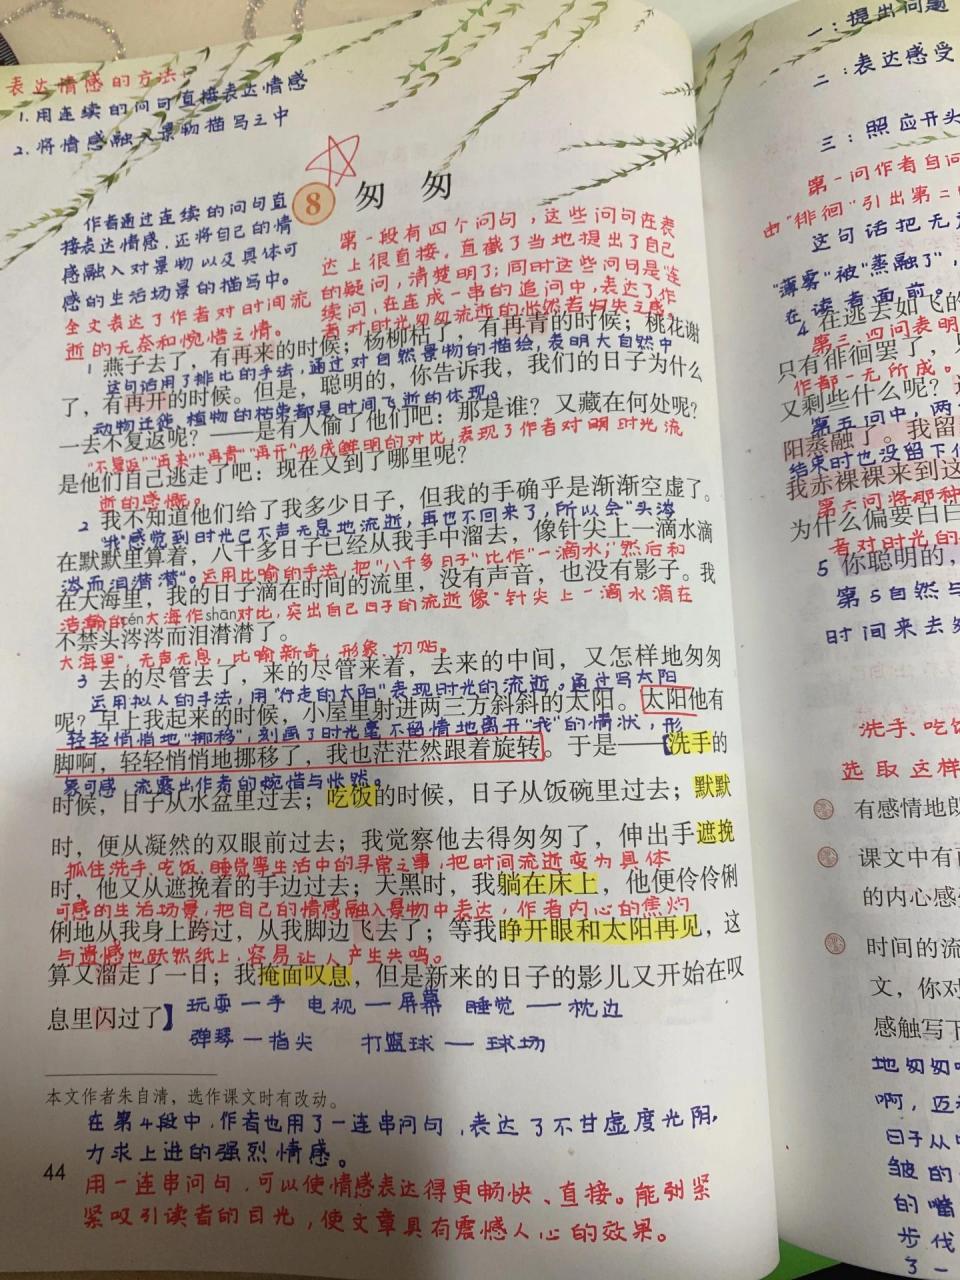 表达情感的方法:
1.用连续的问句直接表达情感
2.将情感融入景物描写之中
8 匆匆
作者通过连续的问句直
接表达情感,还将自己的情
感融入对景物以及具体可
感的生活场景的描写中。
全文表达了作者对时间流
逝的无奈和惋惜之情。
第一段有四个问句,这些问句在表
达上很直接,直截了当地提出了自己
的疑问,清楚明了;同时这些问句是连
续问,在连成一串的追问中,表达了作
者对时光匆匆流逝的怅然若失之感。
1 燕子去了,有再来的时候;杨柳枯了,有再青的时候;桃花谢
这句话用了排比的手法,通过对自然景物的描绘,表明大自然中
了,有再开的时候。但是,聪明的,你告诉我,我们的日子为什么
动物迁徙、植物的枯荣都是时间飞逝的体现。
一去不复返呢?——是有人偷了他们吧:那是谁?又藏在何处呢?
"不复返""再来""再青""再开"形成鲜明的对比,表现了作者对时光流
是他们自己逃走了吧:现在又到了哪里呢?
逝的感慨。
2 我不知道他们给了我多少日子,但我的手确乎是渐渐空虚了。
"我"感觉到时光已不声无息地流逝,再也不回来了,所以会"头涔
在默默里算着,八千多日子已经从我手中溜去,像针尖上一滴水滴
涔而泪潸潸"。运用比喻的手法,把"八千多日子"比作"一滴水",然后和
在大海里,我的日子滴在时间的流里,没有声音,也没有影子。我
浩瀚的大海作对比,突出自己日子的流逝像"针尖上一滴水滴在
shān
不禁头涔涔而泪潸潸了。
大海里",无声无息,比喻新奇,形象、切贴。
3 去的尽管去了,来的尽管来着,去来的中间,又怎样地匆匆
运用拟人的手法,用"行走的太阳"表现时光的流逝。通过写太阳
呢?早上我起来的时候,小屋里射进两三方斜斜的太阳。太阳他有
轻轻悄悄地"挪移",刻画了时光毫不留情地离开"我"的情状,形
脚啊,轻轻悄悄地挪移了,我也茫茫然跟着旋转。于是——【洗手的
象可感,流露出作者的惋惜与怅然。
时候,日子从水盆里过去;吃饭的时候,日子从饭碗里过去;默默
时,便从凝然的双眼前过去;我觉察他去得匆匆了,伸出手遮挽
抓住洗手、吃饭、睡觉等生活中的寻常之事,把时间流逝变为具体
时,他又从遮挽着的手边过去;天黑时,我躺在床上,他便伶伶俐
可感的生活场景,把自己的情感融入景物中表达,作者内心的焦灼
俐地从我身上跨过,从我脚边飞去了;等我睁开眼和太阳再见,这
与遗憾也跃然纸上,容易让人产生共鸣。
算又溜走了一日;我掩面叹息,但是新来的日子的影儿又开始在叹
息里闪过了】
玩耍—手 电视—屏幕 睡觉—枕边
弹琴—指尖 打篮球—球场
本文作者朱自清,选作课文时有改动。
在第4段中,作者也用了一连串问句,表达了不甘虚度光阴,
力求上进的强烈情感。
44
用一连串问句,可以使情感表达得更畅快、直接。能引紧
紧吸引读者的目光,使文章具有震撼人心的效果。
一:提出问题
二:表达感受
三:照应开头
第一问作者自问
由"徘徊"引出第二
这句话把无
"薄雾"被"蒸融了",
在读者面前。
4 在逃去如飞的
第三、四问表明
只有徘徊罢了,
作都一无所成。
又剩些什么呢?
第五问中,两
阳蒸融了。我留
结束时也没留下
我赤裸裸来到这
第六问将那种
为什么偏要白白
者对时光的
5 你聪明的,
第5自然
时间来去
洗手、吃饭
选取这样
有感情地朗
课文中有
的内心感
时间的流
文,你对
感触写下
地匆匆
啊,迈
日子从
皱的
的嘴
步伐